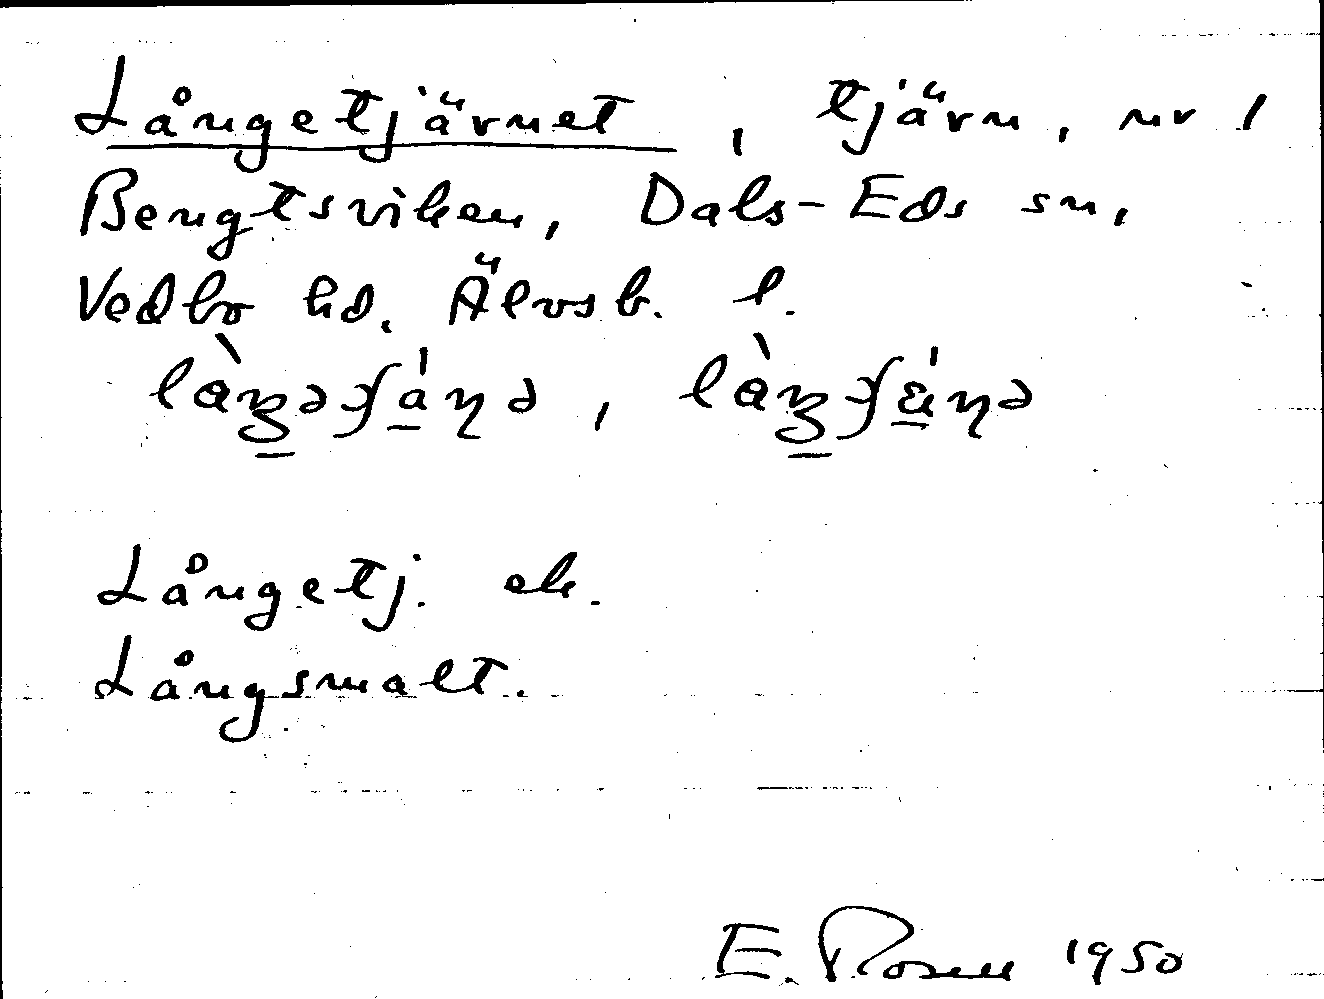 Långetjärnet, tjärn, nv 1
Bengtsviken, Dals-Eds sn,
Vedbo hd. Älvsb. l.
Långetj. ek.
Långsmalt.
E. Rosell 1950